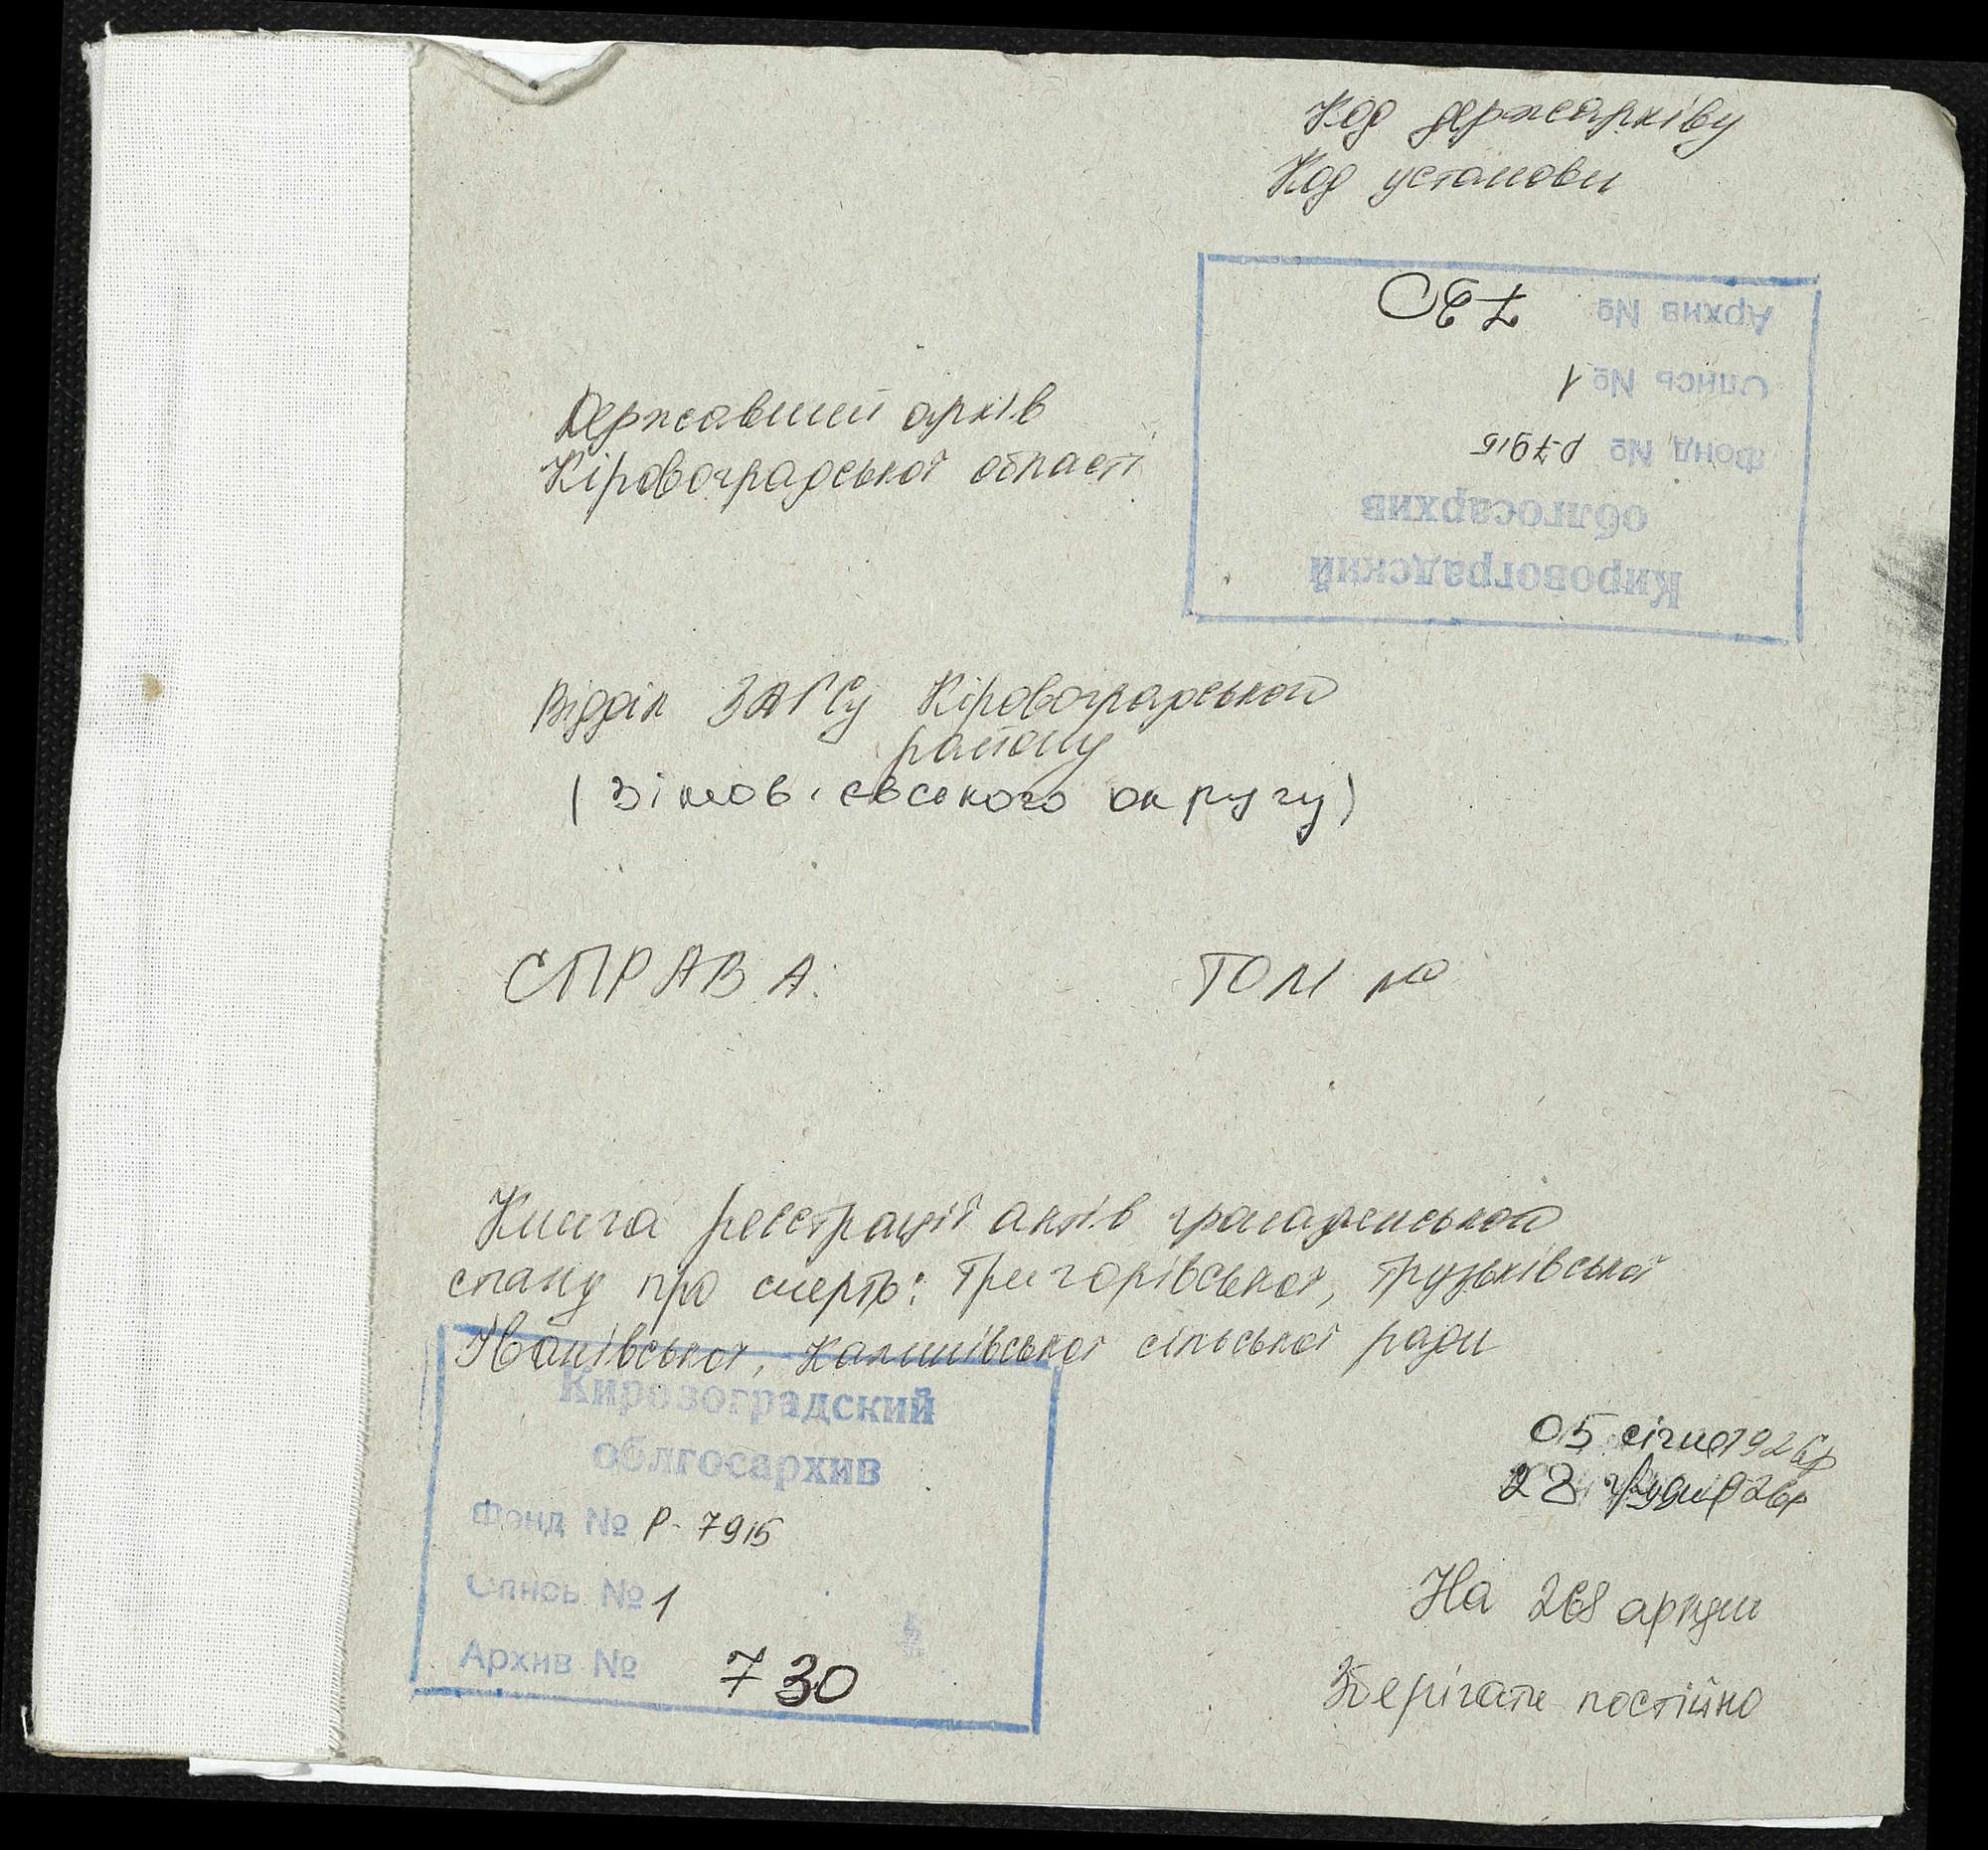 Код держархіву
Код установи
Кировоградский
облгосархив
Фонд № р-7915
Опись № 1
Архив № 730
Державний архів
Кіровоградської області
Відділ ЗАГСу Кіровоградського
району
(Зінов'євського округу)
СПРАВА: ТОМ №
Книга реєстрації актів громадянського
стану про смерть: Григорівської, Грузьківської
Іванівської, Калинівської сільської ради
Кировоградский
облгосархив
Фонд № Р-7915
Опись № 1
Архив № 730
05 січня 1926р
28 грудня 1926р
На 268 аркуш
Зберігати постійно